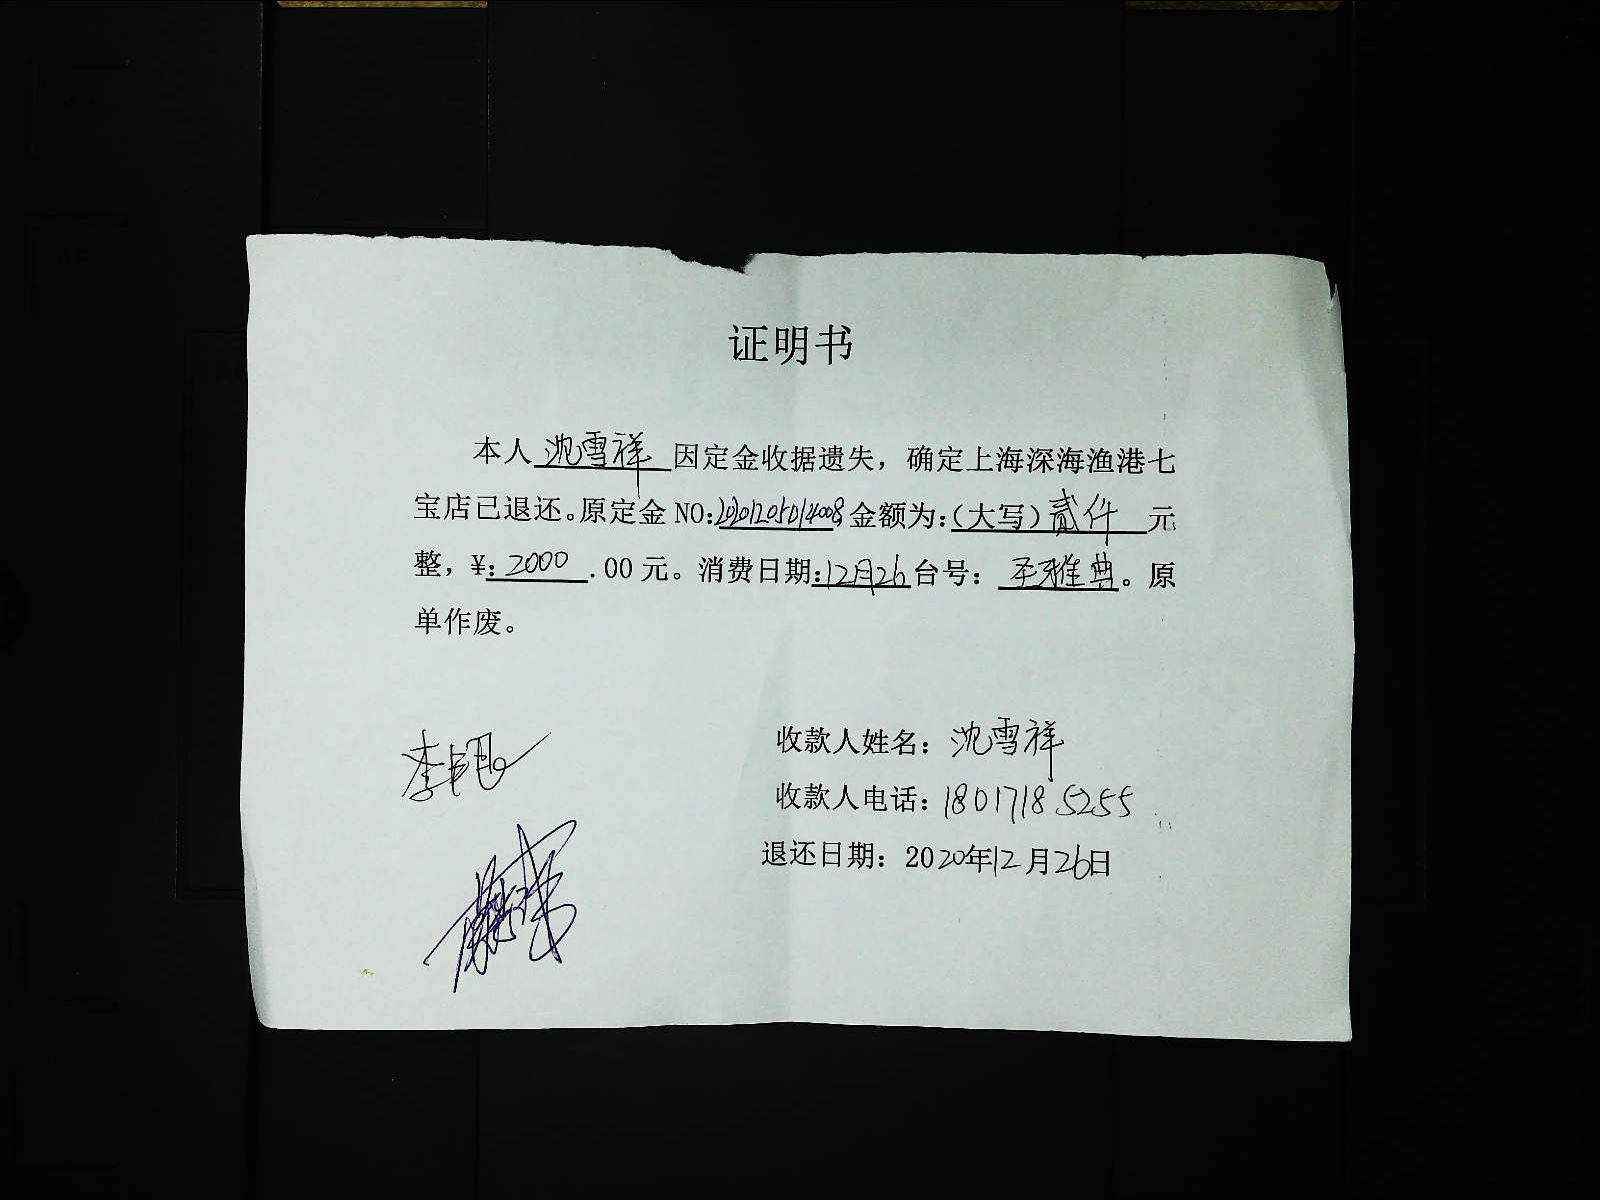 证明书
本人沈雪祥因定金收据遗失，确定上海深海渔港七
宝店已退还。原定金NO:20201205014008金额为：（大写）贰仟元
整，¥：2000.00元。消费日期：12月26台号：圣雅典。原
单作废。
收款人姓名：沈雪祥
收款人电话：18017185255
退还日期：2020年12月26日